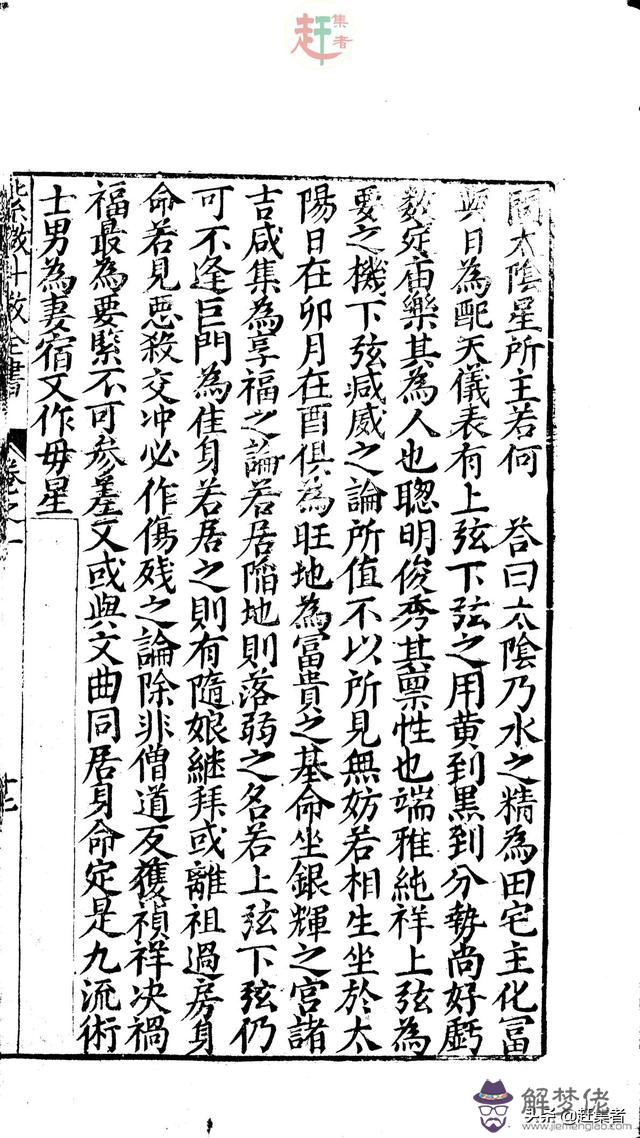 赶集者
問太陰星所主若何　荅曰太陰乃水之精為田宅主化冨
與日為配天儀表有上弦下弦之用黄到黒到分勢尚好虧
数定庙樂其為人也聰明俊秀其禀性也端雅純祥上弦為
要之機下弦减威之論所值不以所見無妨若相生坐於太
陽日在卯月在酉俱為旺地為冨貴之基命坐銀輝之宫諸
吉咸集為享福之論若居陷地則落弱之名若上弦下弦仍
可不逢巨門為佳身若居之則有隨娘継拜或離祖過房身
命若見恶殺交冲必作傷残之論除非僧道反獲禎祥决禍
福最為要緊不可叅差又或與文曲同居身命定是九流術
士男為妻宿又作毋星
数全書　卷之一
十七
解梦佬
头条@赶集者
www.jiemenglao.com